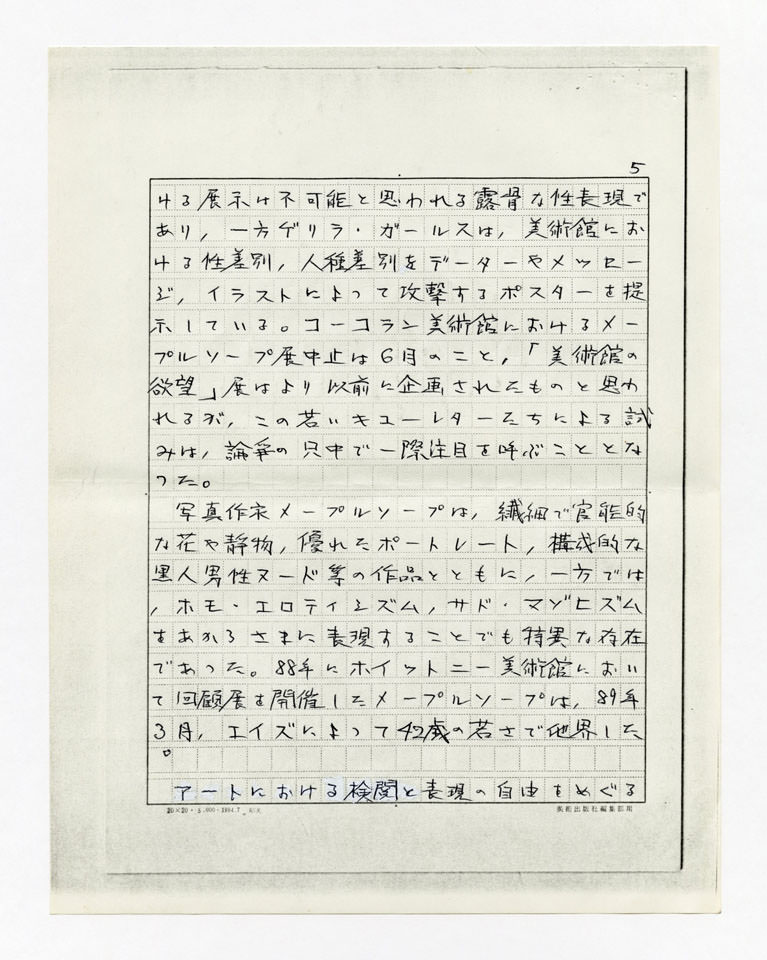 5
ける展示は不可能と思われる露骨な性表現で
あり,一方ゲリラ・ガールスは,美術館にお
ける性差別,人種差別をデーターやメッセー
ジ,イラストによって攻撃するポスターを提
示している。コーコラン美術館におけるメー
プルソープ展中止は6月のこと,「美術館の
欲望」展はより以前に企画されたものと思わ
れるが,この若いキューレターたちによる試
みは,論争の只中で一際注目を呼ぶこととな
った。
写真作家メープルソープは,繊細で官能的
な花や静物,優れたポートレート,構成的な
黒人男性ヌード等の作品とともに,一方では
,ホモ・エロティシズム,サド・マゾヒズム
をあからさまに表現することでも特異な存在
であった。88年にホイットニー美術館におい
て回顧展を開催したメープルソープは,89年
3月,エイズによって42歳の若さで他界した
。
アートにおける検閲と表現の自由をめぐる
20×20・5,000・1984.7
美術出版社編集部用